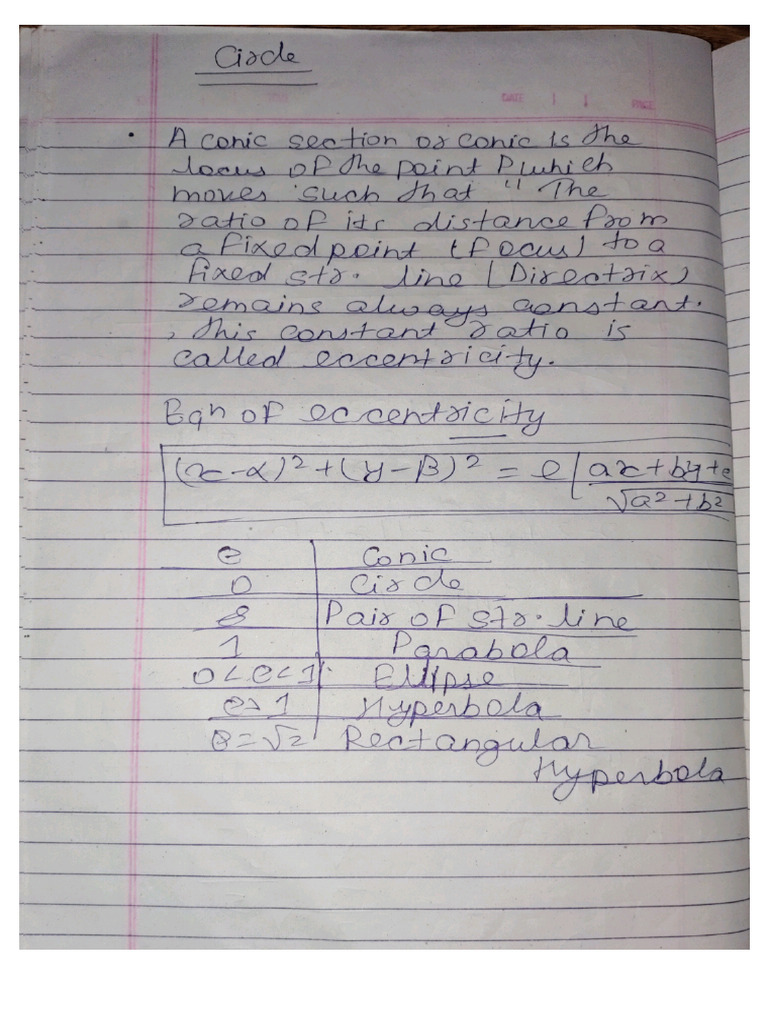 Circle
DATE
PAGE
• A conic section or conic is the
locus of the point P which
moves such that " The
ratio of its distance from
a fixed point (focus) to a
fixed str. line (Directrix)
remains always constant.
, this constant ratio is
called eccentricity.
Eqn of eccentricity
(x-α)² + (y-β)² = e | ax+by+c
√a²+b²
e Conic
0 Circle
Pair of str. line
1 Parabola
0<e<1 Ellipse
e>1 Hyperbola
e=√2 Rectangular
Hyperbola